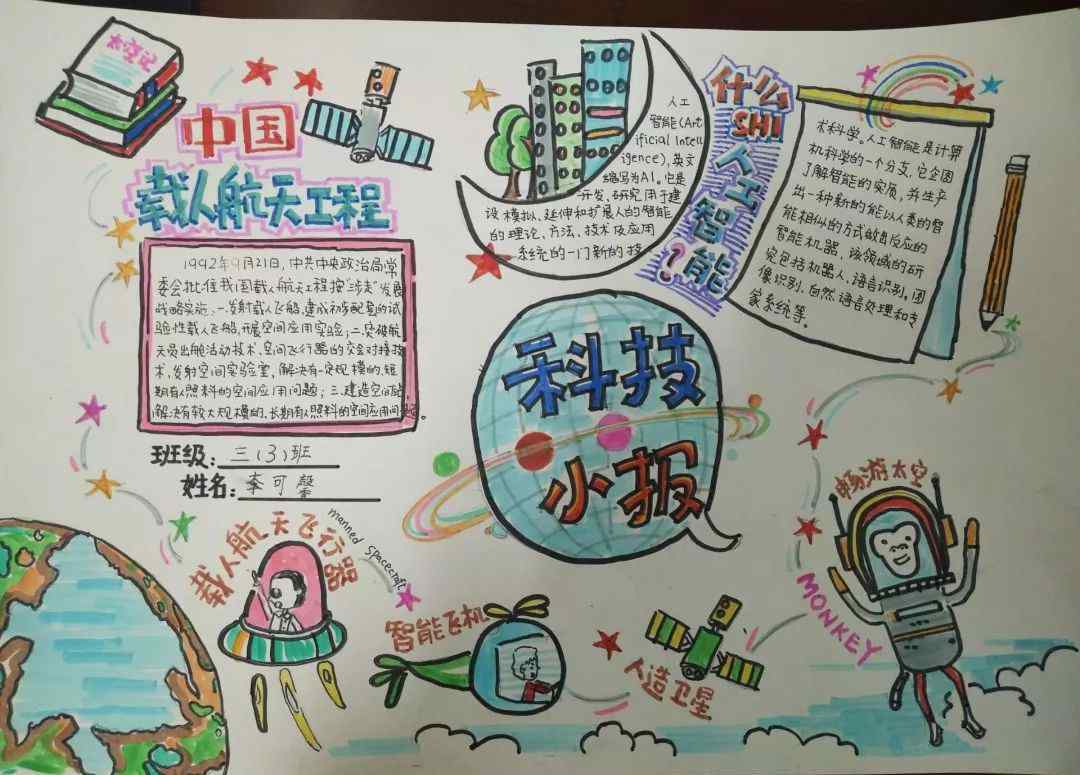 太空记
中国
载人航天工程
1992年9月21日，中共中央政治局常
委会批准我国载人航天工程按“三步”发展
战略实施：一.发射载人飞船，建成初步配套的试
验性载人飞船，开展空间应用实验；二.突破航
天员出舱活动技术、空间飞行器的交会对接技
术，发射空间实验室，解决有一定规模的、短
期有人照料的空间应用问题；三.建造空间站，
解决有较大规模的、长期有人照料的空间应用问题。
班级：三（3）班
姓名：李可馨
人工
智能（Art
ificial Intell
igence），英文
缩写为AI。它是
开发、研究用于建
设模拟、延伸和扩展人的智能
的理论、方法、技术及应用
系统的一门新的技
什么
SHI
人工智能？
术科学。人工智能是计算
机科学的一个分支，它企图
了解智能的实质，并生产
出一种新的能以人类的智
能相似的方式做出反应的
智能机器，该领域的研
究包括机器人、语言识别、图
像识别、自然语音处理和专
家系统等。
科技
小报
载人航天飞行器
manned spacecraft
智能飞机
人造卫星
畅游太空
MONKEY